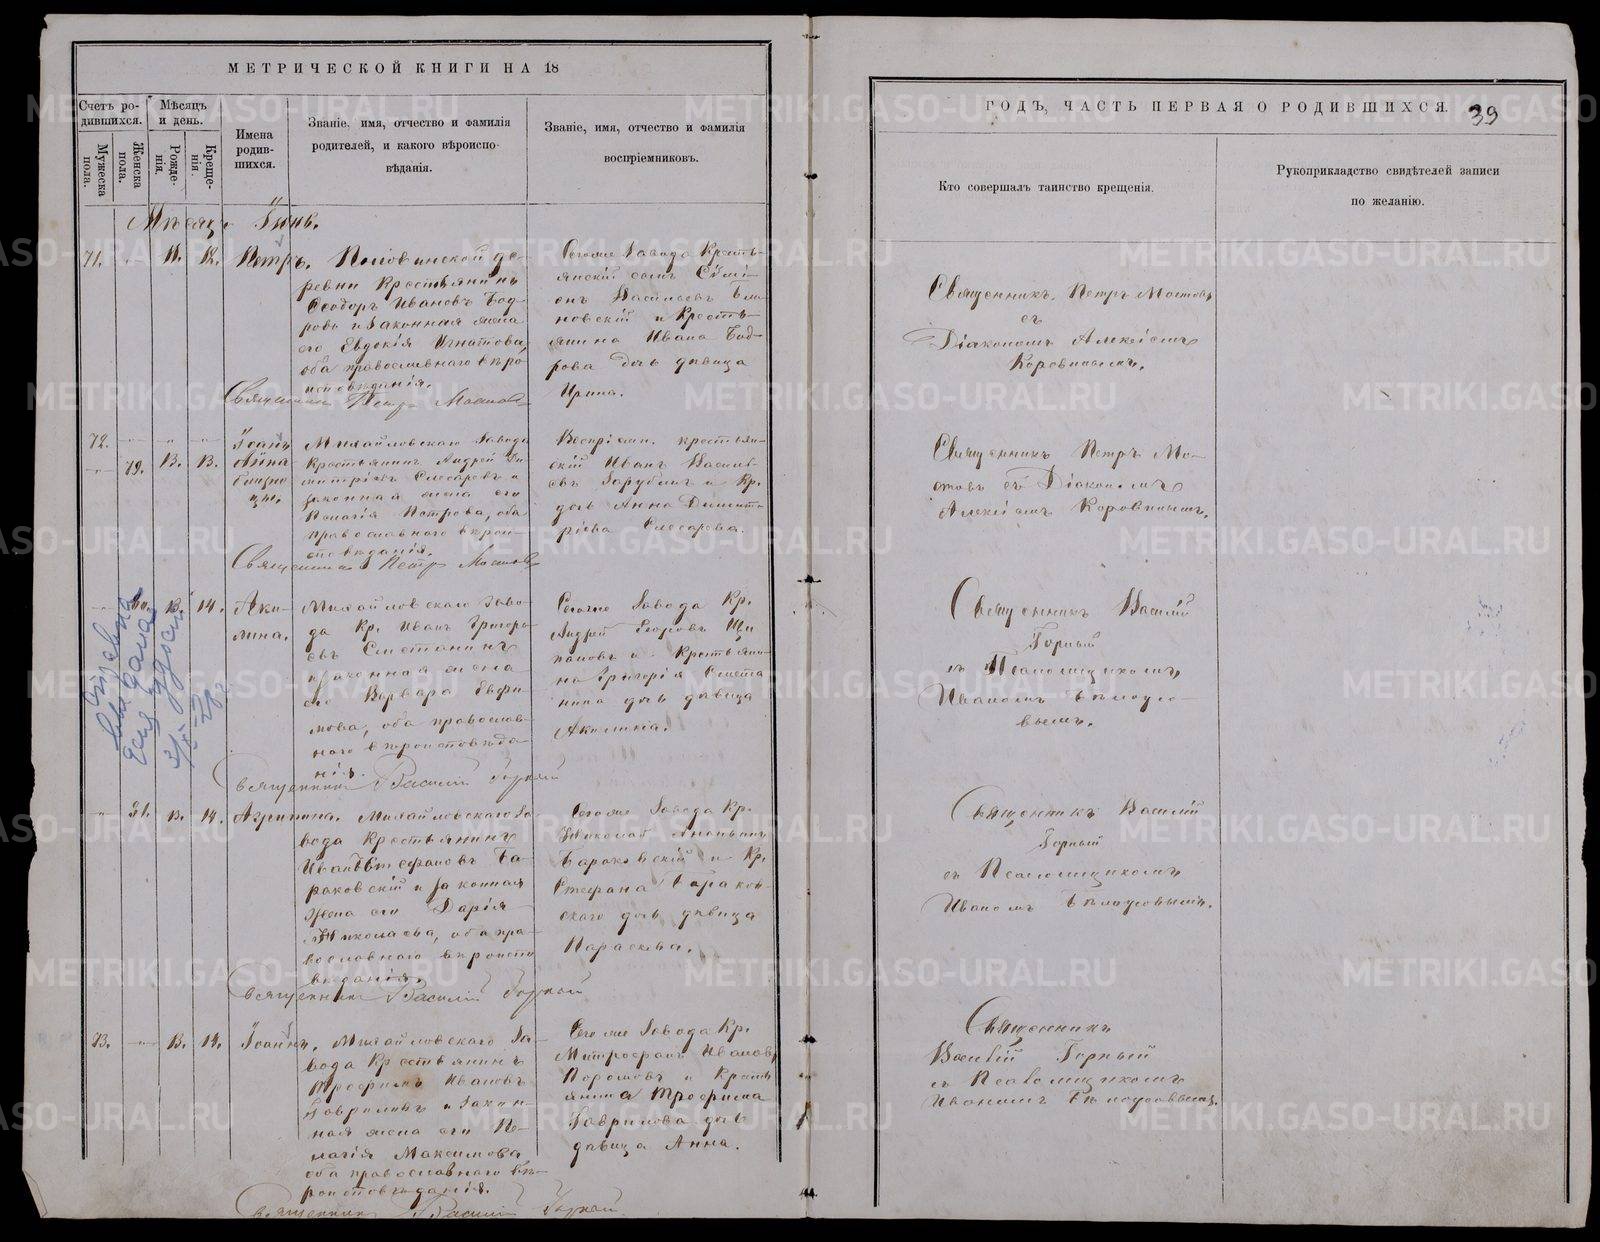 МЕТРИЧЕСКОЙ КНИГИ НА 18
Счетъ ро-
дившихся.
Мужеска
пола.
Женска
пола.
Мѣсяцъ
и день.
Рожде-
нія.
Креще-
нія.
Имена
родив-
шихся.
Званіе, имя, отчество и фамилія
родителей, и какого вѣроиспо-
вѣданія.
Званіе, имя, отчество и фамилія
воспріемниковъ.
Мѣсяцъ Іюнь.
71. 11. 12. Петръ.
Половинской де-
ревни Крестьянинъ
Ѳеодоръ Ивановъ Бод-
ровъ и законная жена
его Евдокія Игнатова,
оба православнаго вѣро
исповѣданія.
Сегоже Завода Кресть-
янскій сынъ Сѵмі-
онъ Васильевъ
новскій и Кресть-
янина Ивана Бод-
рова дочь дѣвица
Ирина.
Священникъ Петръ Мостовъ
72. Іоаннъ
79. 13. 13. Анна
близне
цы.
Михайловскаго Завода
Крестьянинъ Андрей Ди-
митріевъ Слесаревъ и
законная жена его
Пелагія Петрова, оба
православнаго вѣрои-
сповѣданія.
Воспріем. крестьян-
скій Иванъ Василь-
евъ Зарубинъ и Кр.
дочь Анна Димит-
ріева Слесарева.
Священникъ Петръ Мостовъ
80. 13. 14. Аки-
лина.
Михайловскаго Заво-
да Кр. Иванъ Григорь-
евъ Сметанинъ
и законная жена
его Варвара Ефи-
мова, оба православ-
наго вѣроисповѣда-
нія.
Сегоже Завода Кр.
Андрей Егоровъ Щи
пановъ и Крестьяни-
на Григорія Смета
нина дочь дѣвица
Акилина.
Священникъ Василій Горный
81. 13. 14. Агрипина.
Михайловскаго За-
вода Крестьянинъ
Иванъ Стефановъ Ба-
раковскій и законная
жена его Дарія
Николаева, оба пра-
вославнаго вѣроиспо
вѣданія.
Сегоже Завода Кр.
Николай Ананьинъ
Бараковскій и Кр.
Стефана Бараков-
скаго дочь дѣвица
Параскева.
Священникъ Василій Горный
73. 13. 14. Іоаннъ.
Михайловскаго За-
вода Крестьянинъ
Трофимъ Ивановъ
Гавриловъ и закон-
ная жена его Пе-
лагія Максимова
оба православнаго вѣ-
роисповѣданія.
Сегоже Завода Кр.
Митрофанъ Ивановъ
Пороховъ и Кресть
янина Трофима
Гаврилова дочь
дѣвица Анна.
Священникъ Василій Горный
ГОДЪ, ЧАСТЬ ПЕРВАЯ О РОДИВШИХСЯ.
39
Кто совершалъ таинство крещенія.
Рукоприкладство свидѣтелей записи
по желанію.
Священникъ Петръ Мостовъ
съ
Діакономъ Алексіемъ
Коровинымъ.
Священникъ Петръ Мо-
стовъ съ Діакономъ
Алексіемъ Коровинымъ.
Священникъ Василій
Горный
съ Псаломщикомъ
Иваномъ Бѣлоусо-
вымъ.
Священникъ Василій
Горный
съ Псаломщикомъ
Иваномъ Бѣлоусовымъ.
Священникъ
Василій Горный
съ Псаломщикомъ
Иваномъ Бѣлоусовымъ.
METRIKI.GASO-URAL.RU